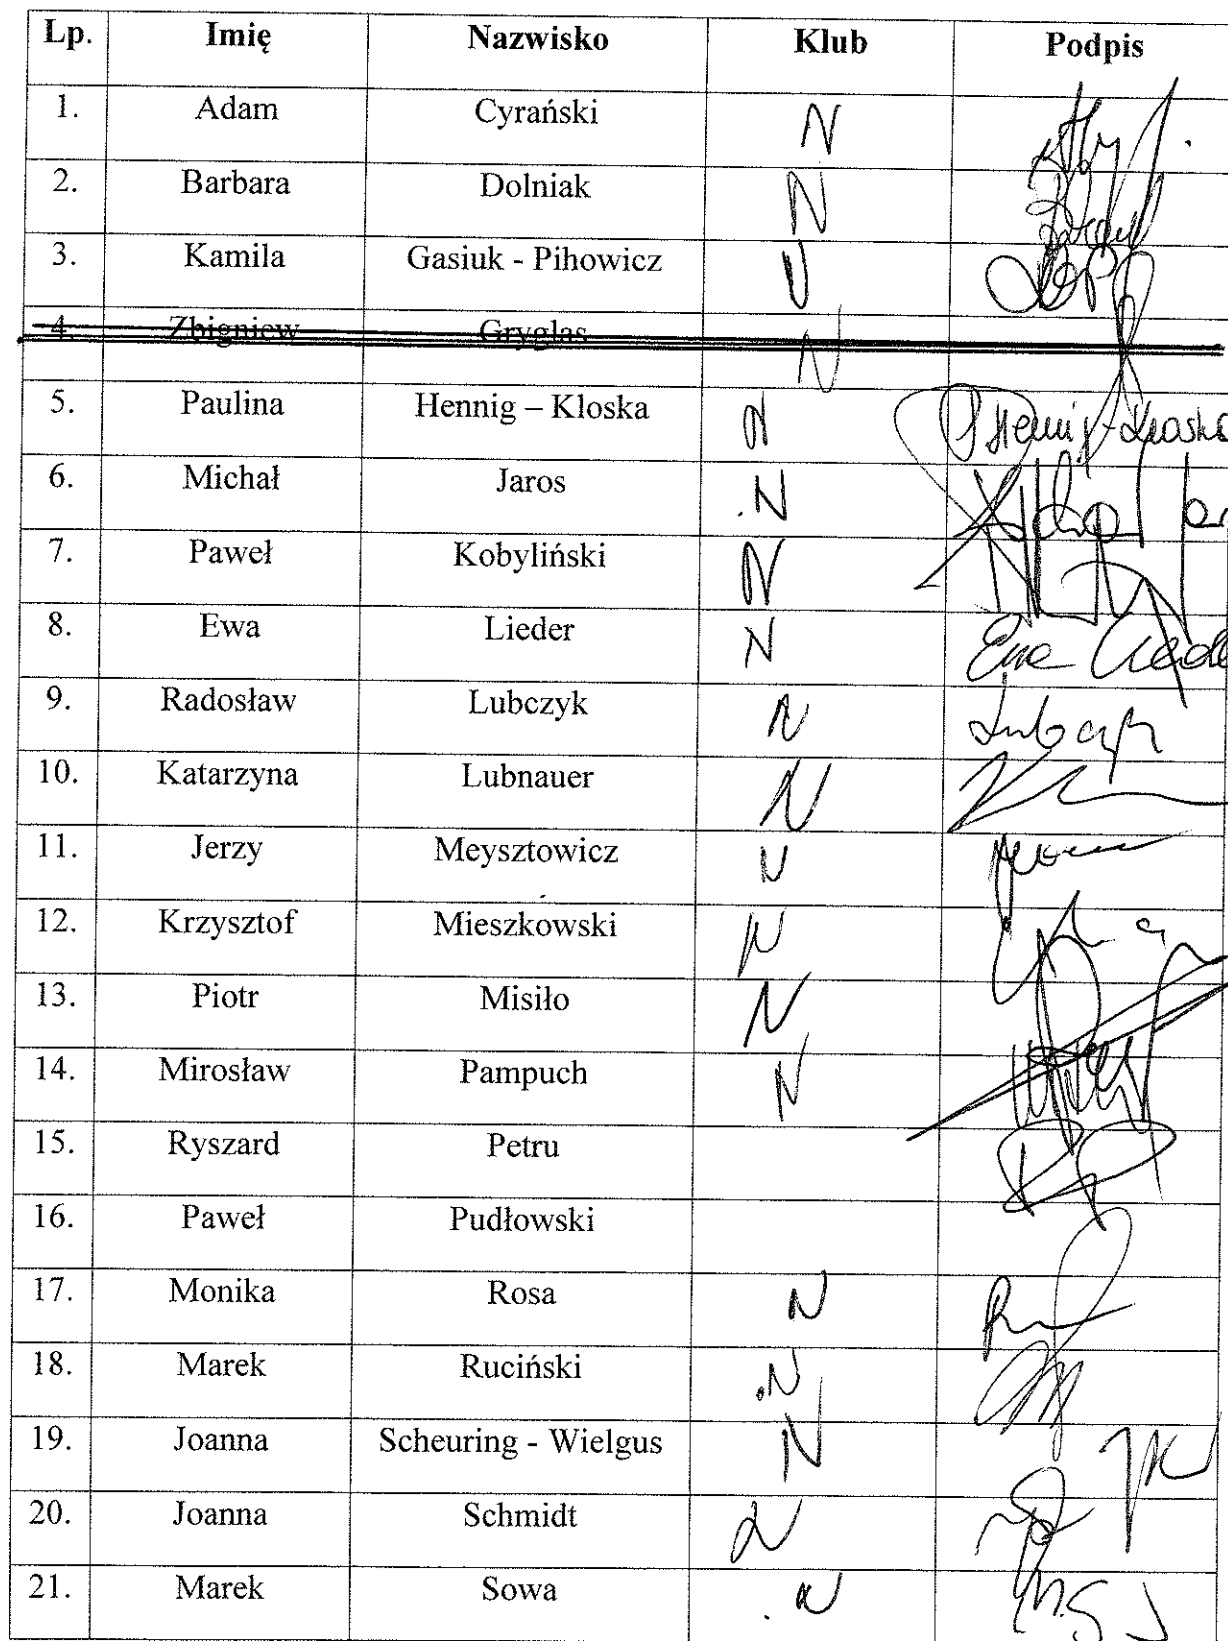 Lp. Imię Nazwisko Klub Podpis
1. Adam Cyrański N
2. Barbara Dolniak N
3. Kamila Gasiuk - Pihowicz N
4. Zbigniew Gryglas N
5. Paulina Hennig – Kloska N PHennig-Kloska
6. Michał Jaros N
7. Paweł Kobyliński N
8. Ewa Lieder N Ewa Lieder
9. Radosław Lubczyk N Lubczyk
10. Katarzyna Lubnauer N
11. Jerzy Meysztowicz N
12. Krzysztof Mieszkowski N
13. Piotr Misiło N
14. Mirosław Pampuch N
15. Ryszard Petru
16. Paweł Pudłowski
17. Monika Rosa N
18. Marek Ruciński N
19. Joanna Scheuring - Wielgus N
20. Joanna Schmidt
21. Marek Sowa N